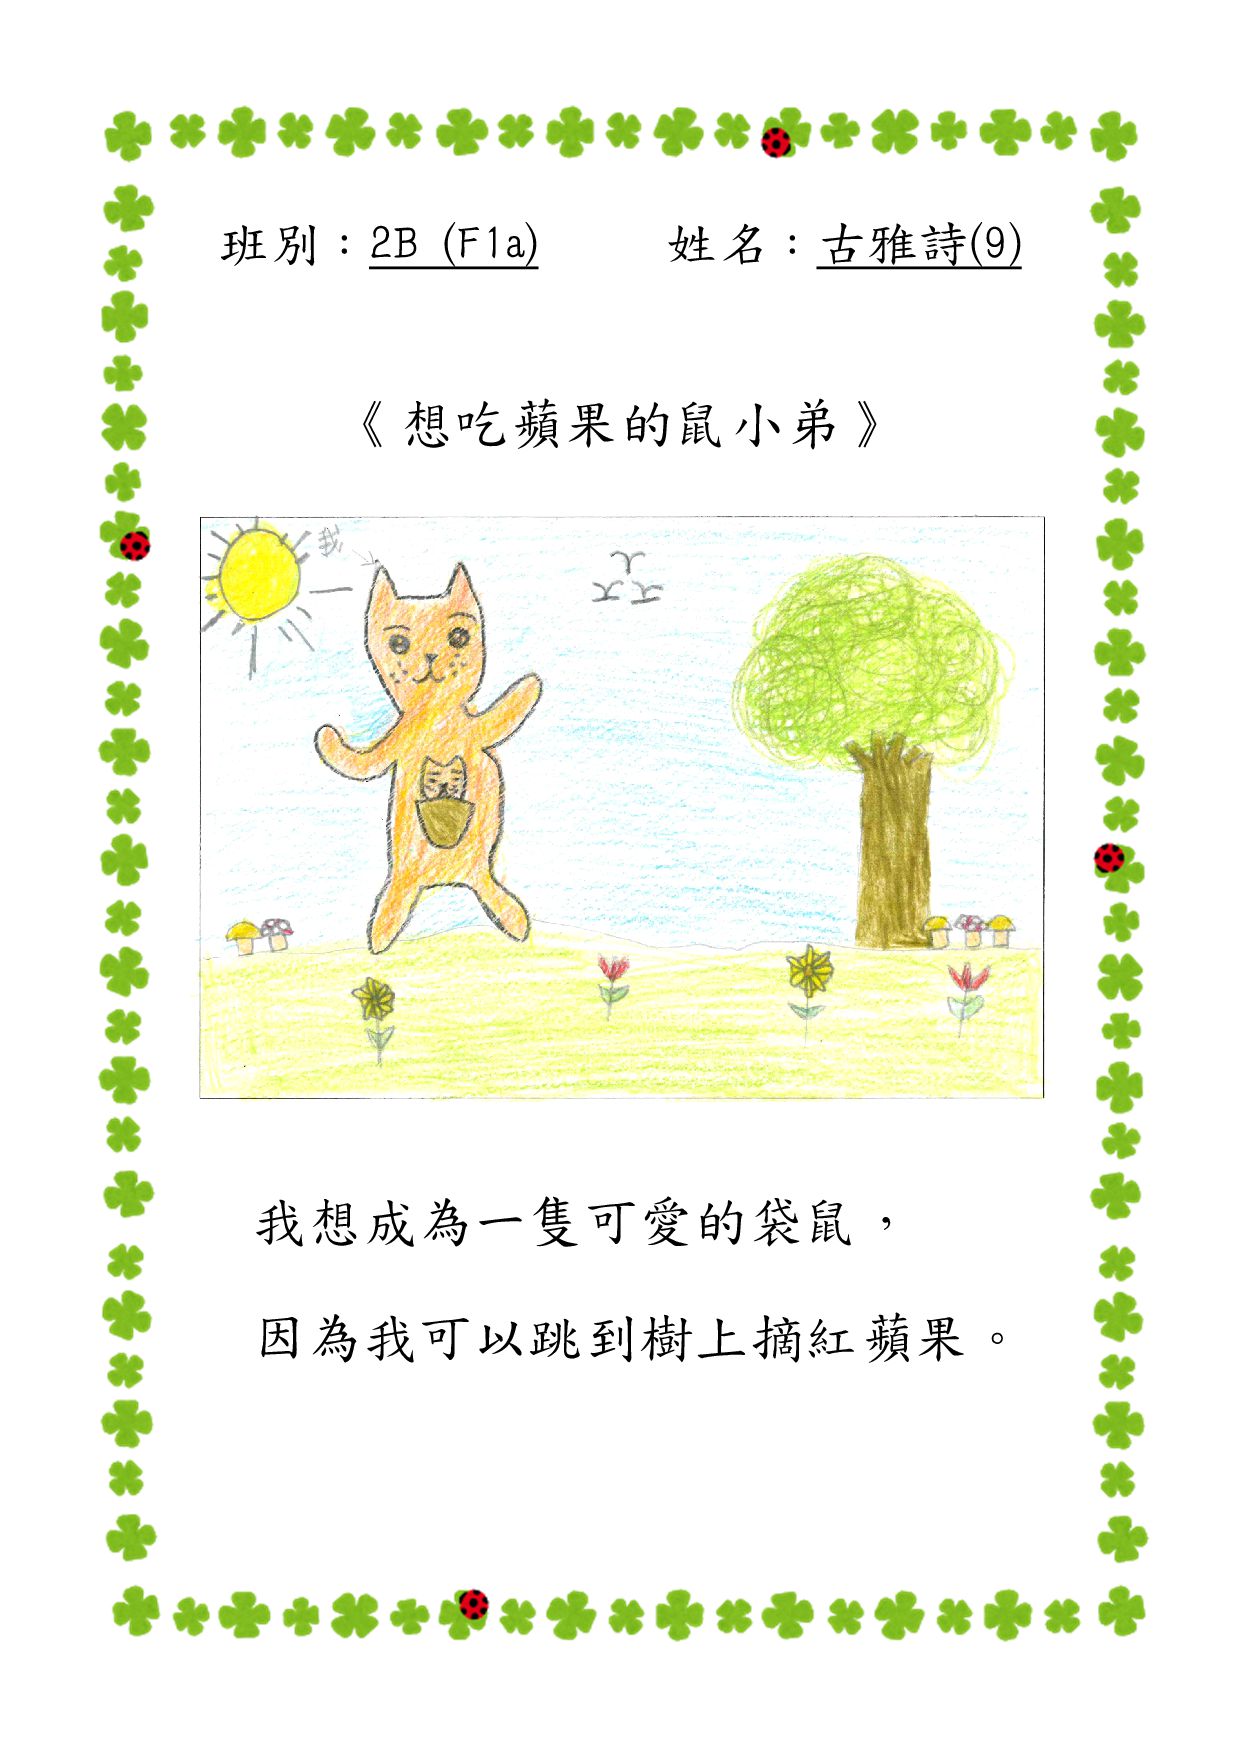 班別：2B (F1a) 姓名：古雅詩(9)
《想吃蘋果的鼠小弟》
我
我想成為一隻可愛的袋鼠，
因為我可以跳到樹上摘紅蘋果。